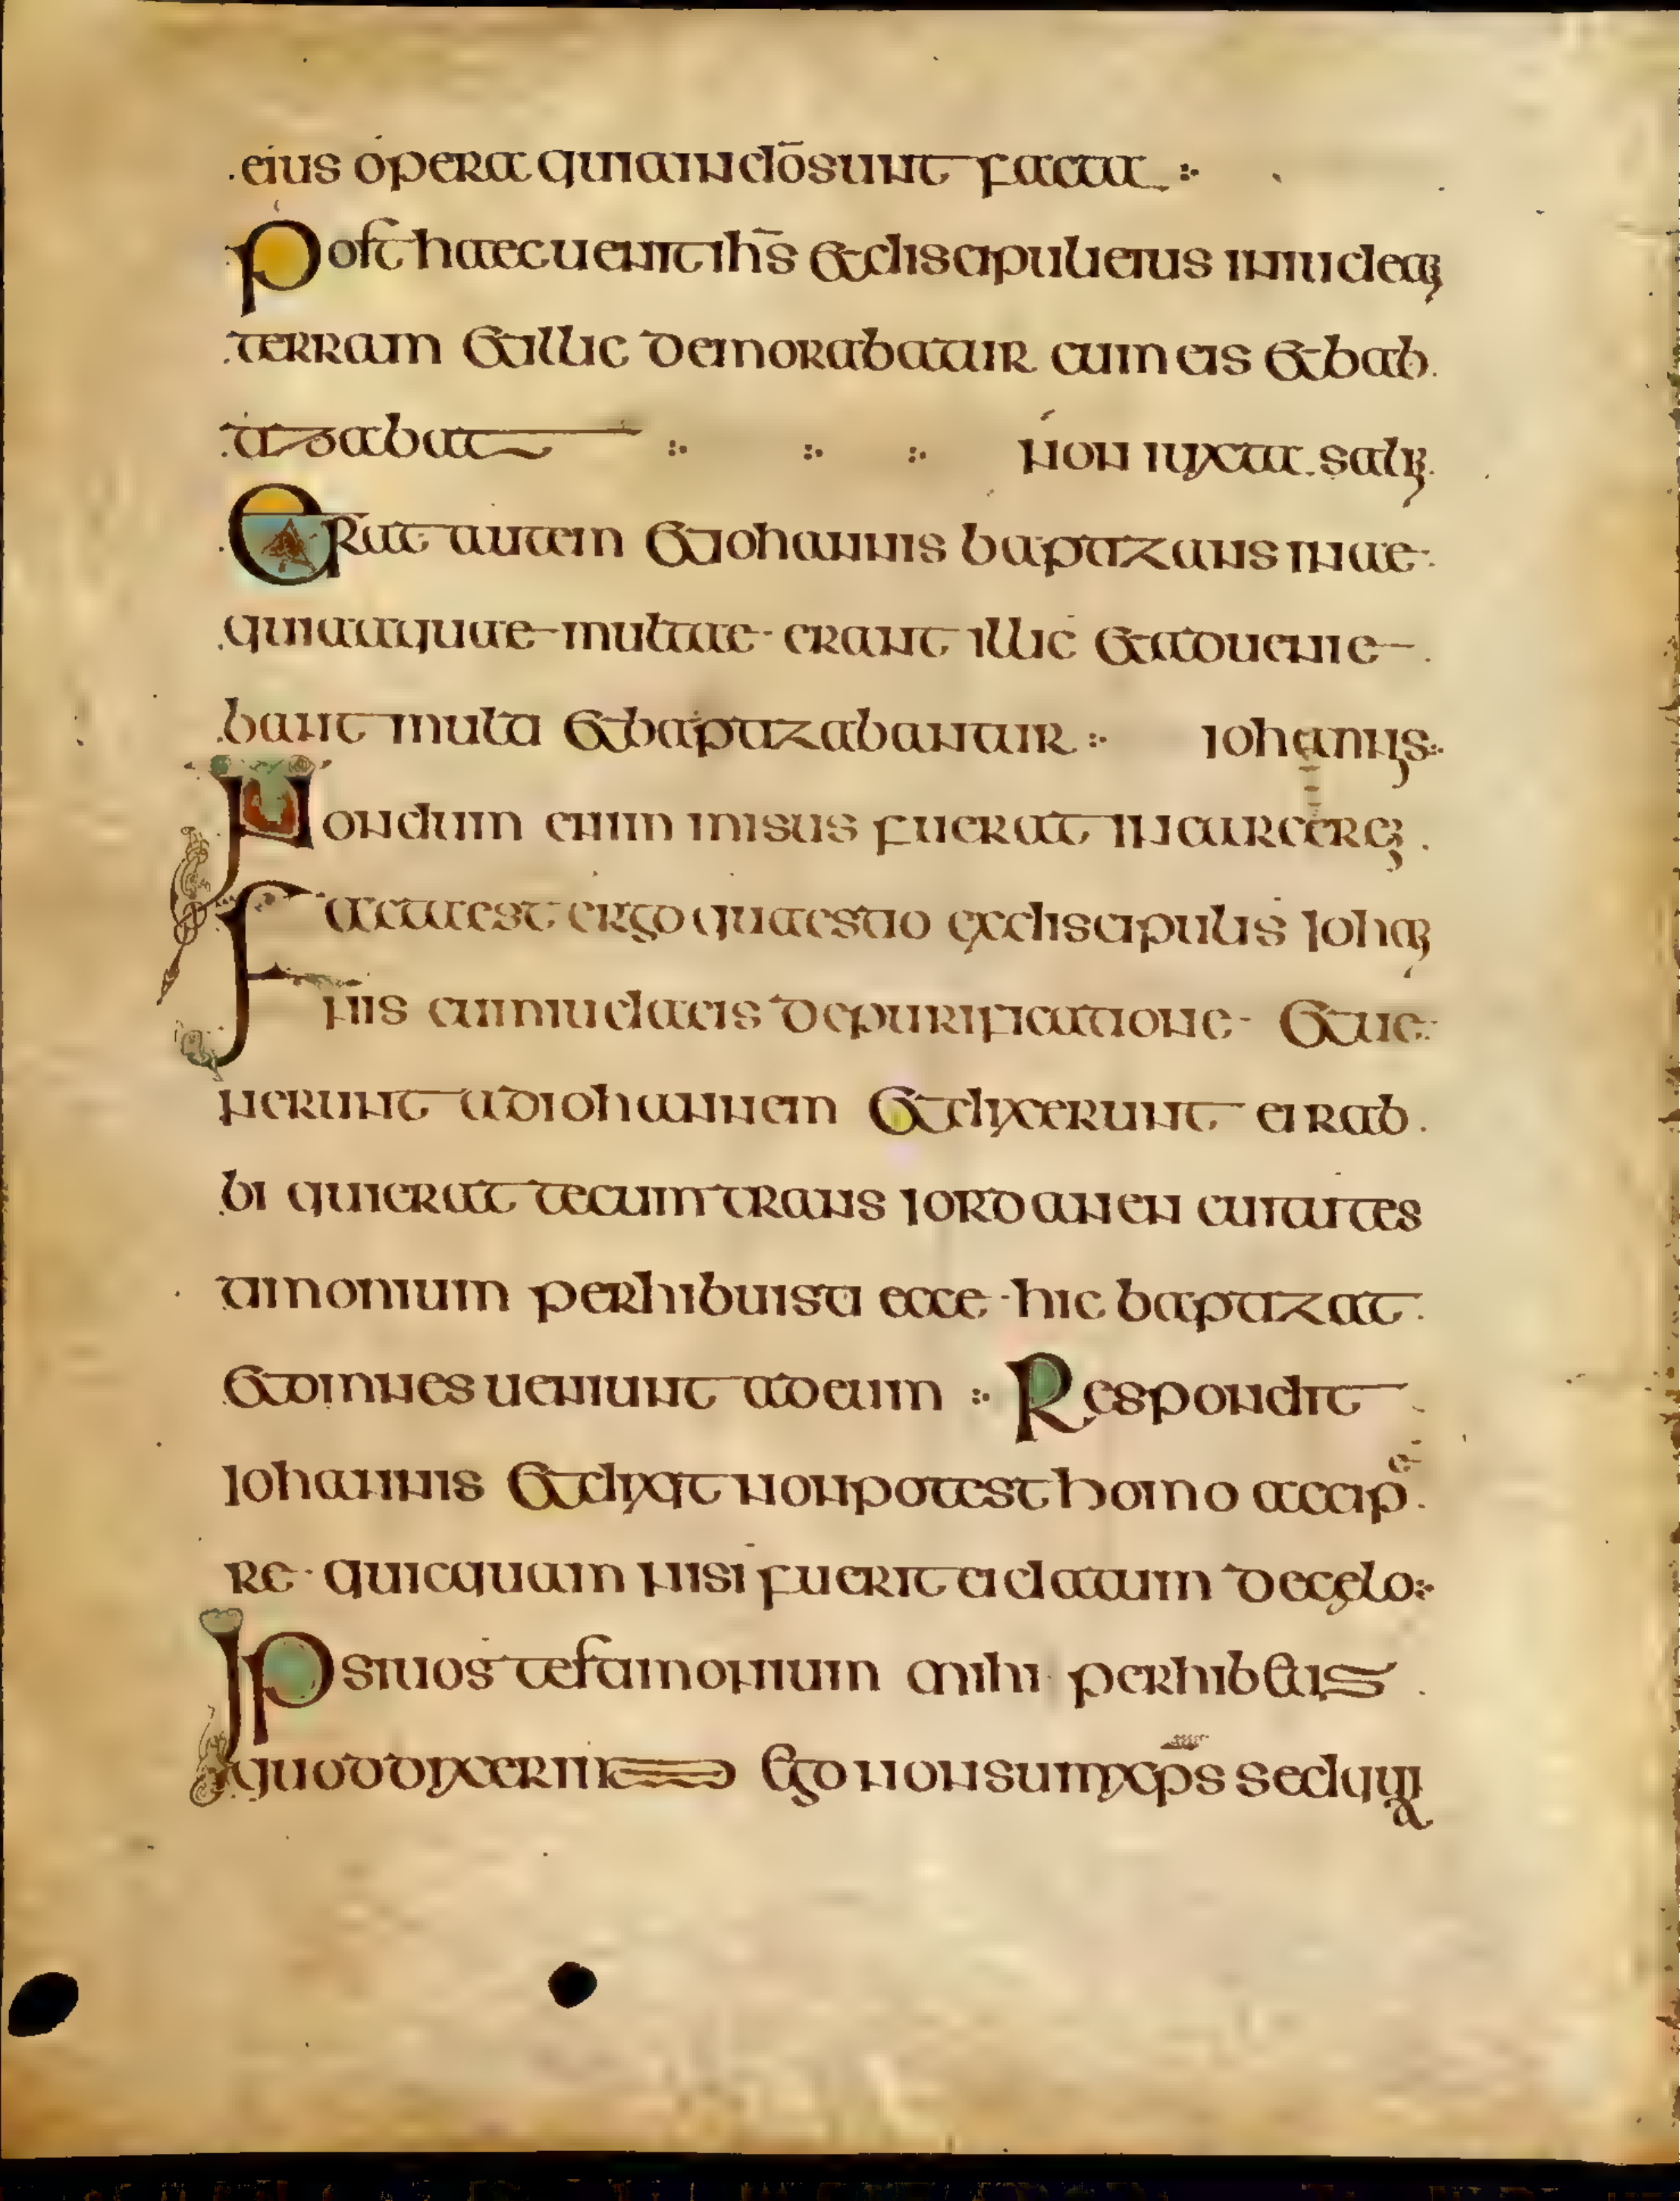 eius opera quia in dō sunt facta
Post haec uenit ihs̄ et discipuli eius in iudeam
terram et illic demorabatur cum eis et bab
tizabat non iuxta salim
Erat autem et iohannis baptizans in ae
quia aquae multae erant illic et aduenie
bant multi et baptizabantur iohannis
Nondum enim misus fuerat in carcerem
Facta est ergo quaestio ex discipulis Iohan
nis cum iudaeis de purificatione et ue
nerunt ad iohannem et dixerunt ei rab
bi qui erat tecum trans Iordanen cui tu tes
timonium perhibuisti ecce hic baptizat
et omnes ueniunt ad eum Respondit
Iohannis et dixit non potest homo accipe
re quicquam nisi fuerit ei datum de cęlo
Ipsi uos testimonium mihi perhibetis
quod dixerim Ego non sum xp̄s sed quia